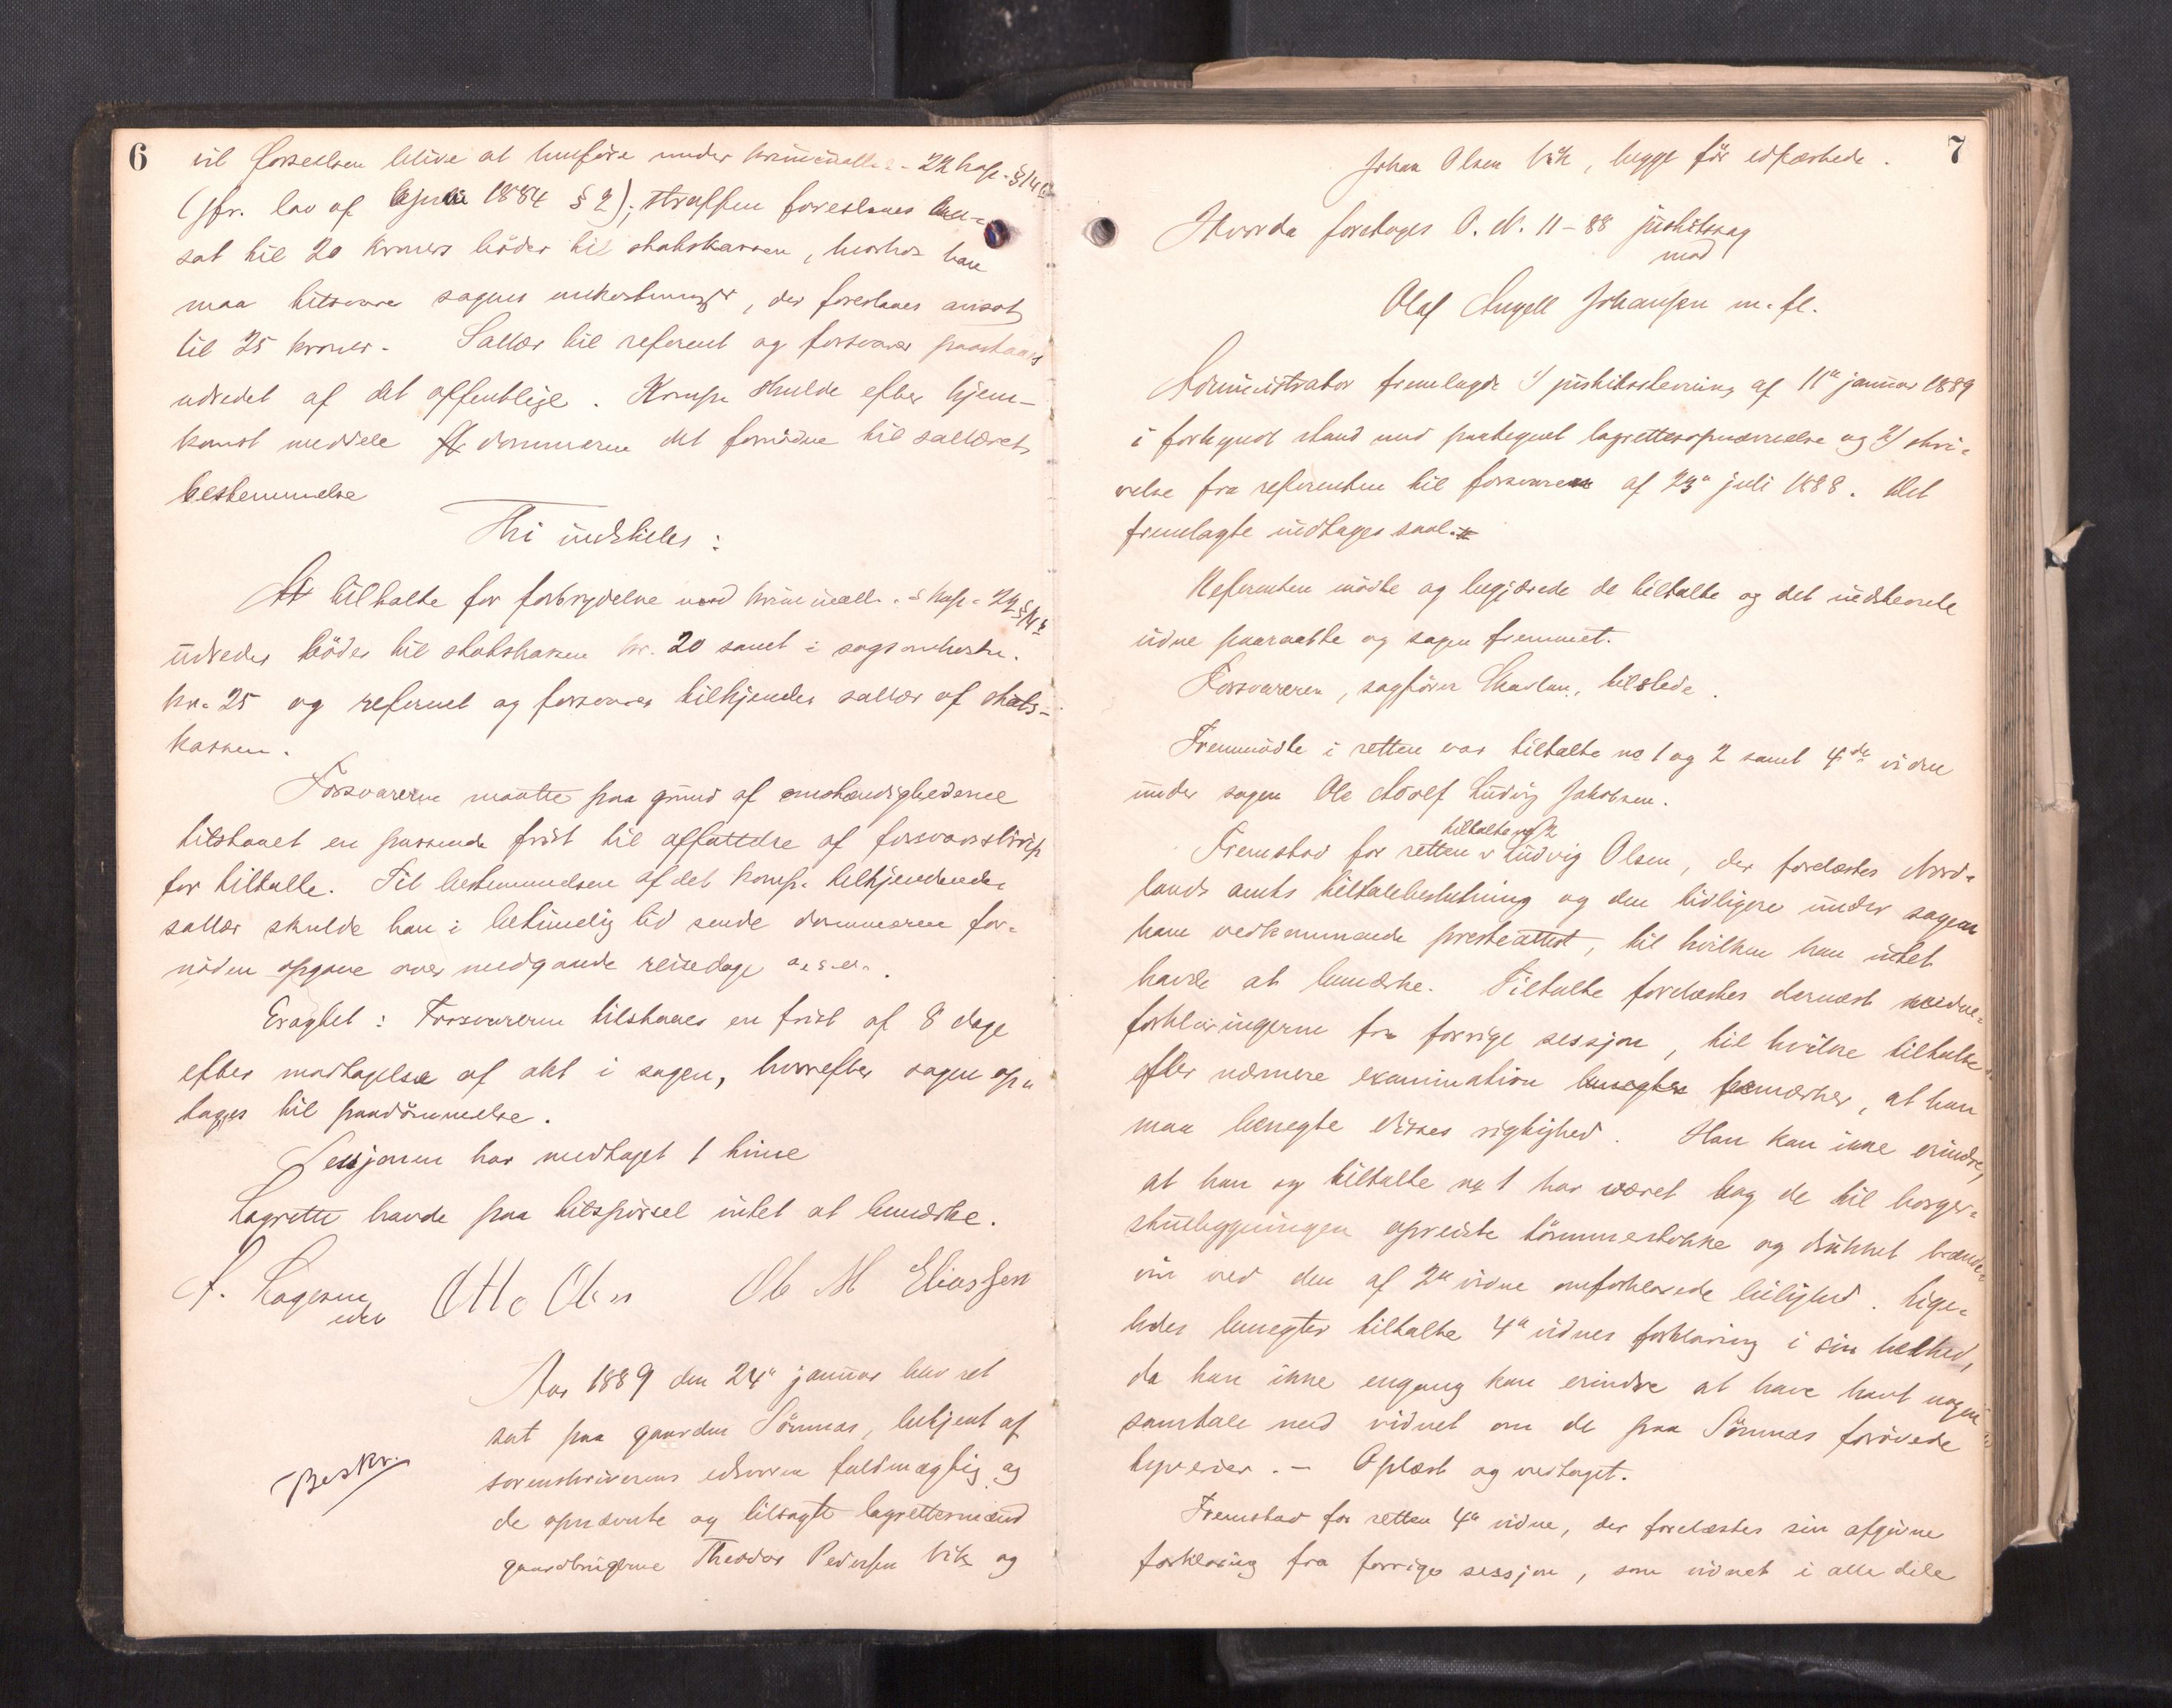 6
vil forseelsen blive at henføre under kriminall. - 22 kap. § 14
(jfr. lov af 1884 § 2); straffen foreslaaes an-
sat til 20 kroners bøder til statskassen, hvorhos han
maa tilsvare sagens omkostninger, der foreslaaes ansat
til 25 kroner. Sallær til referent og forsvarer paastaaes
udredet af det offentlige. Komp. skulde efter hjem-
komst meddele dommeren det fornødne til sallærets
bestemmelse
Thi indstilles:
At tiltalte for forbrydelse mod kriminall. s kap. 22 § 14
udreder bøder til statskassen kr. 20 samt i sagsomkostn.
kr. 25 og referent og forsvarer tilkjendes sallær af stats-
kassen.
Forsvareren maatte paa grund af omstændighederne
tilstaaet en passende frist til affattelse af forsvarsskrift
for tiltalte. Til bestemmelsen af det komp. tilkjendende
sallær skulde han i betimelig tid sende dommeren for-
nøden opgave over medgaaede reisedage
Eragtet: Forsvareren tilstaaes en frist af 8 dage
efter modtagelse af akt i sagen, hvorefter sagen op-
tages til paadømmelse.
Sessjonen har medtaget 1 time
Lagrettet havde paa tilspørsel intet at bemærke.
Otto Olsen Ole M Eliassen
Aar 1889 den 24de januar blev ret
sat paa gaarden Sömnæs, betjent af
Beskr.
sorenskriverens edsvorne fuldmægtig og
de opnævnte og tilsagte lagrettemænd
gaardbrugerne Theodor Pedersen Vik og
7
Johan Olsen Vik, begge før edfæstede.
Hvorda foretoges O. N. 11-88 justitssag
mod
Olaf Angell Johansen m. fl.
Administrator fremlagde 1/ justitsstevning af 11te januar 1889
i forkyndt stand med paategnet lagretteopnævnelse og 2/ skri-
velse fra referenten til forsvareren af 23de juli 1888. Det
fremlagte indtages saal.
Referenten mødte og begjærede de tiltalte og det indstevnte
vidne paaraabte og sagen fremmet.
Forsvareren, sagfører tilstede.
Fremmødte i retten var tiltalte no 1 og 2 samt 4de vidne
under sagen Ole Adolf Ludvig Jakobsen.
tiltalte no 2
Fremstod for retten v Ludvig Olsen, der forelæstes Nord-
lands amts tiltalebeslutning og den tidligere under sagen
ham vedkommende presteattest, til hvilken han intet
havde at bemærke. Tiltalte forelæstes dernæst vidne-
forklaringerne fra forrige sessjon, til hvilke tiltalte
efter nærmere examination benegter bemærker, at han
maa benegte disses rigtighed. Han kan ikke erindre,
at han og tiltalte no 1 har været bag de til borger-
stuebygningen opreiste tømmerstokke og drukket brænde-
vin ved den af 2de vidne omforklarede leilighed. Lige-
ledes benegter tiltalte 4de vidnes forklaring i sin helhed,
da han ikke engang kan erindre at have havt nogen
samtale med vidnet om de paa Sömnæs forøvede
tyverier. - Oplæst og vedtaget.
Fremstod for retten 4de vidne, der forelæstes sin afgivne
forklaring fra forrige sessjon, som vidnet i alle dele